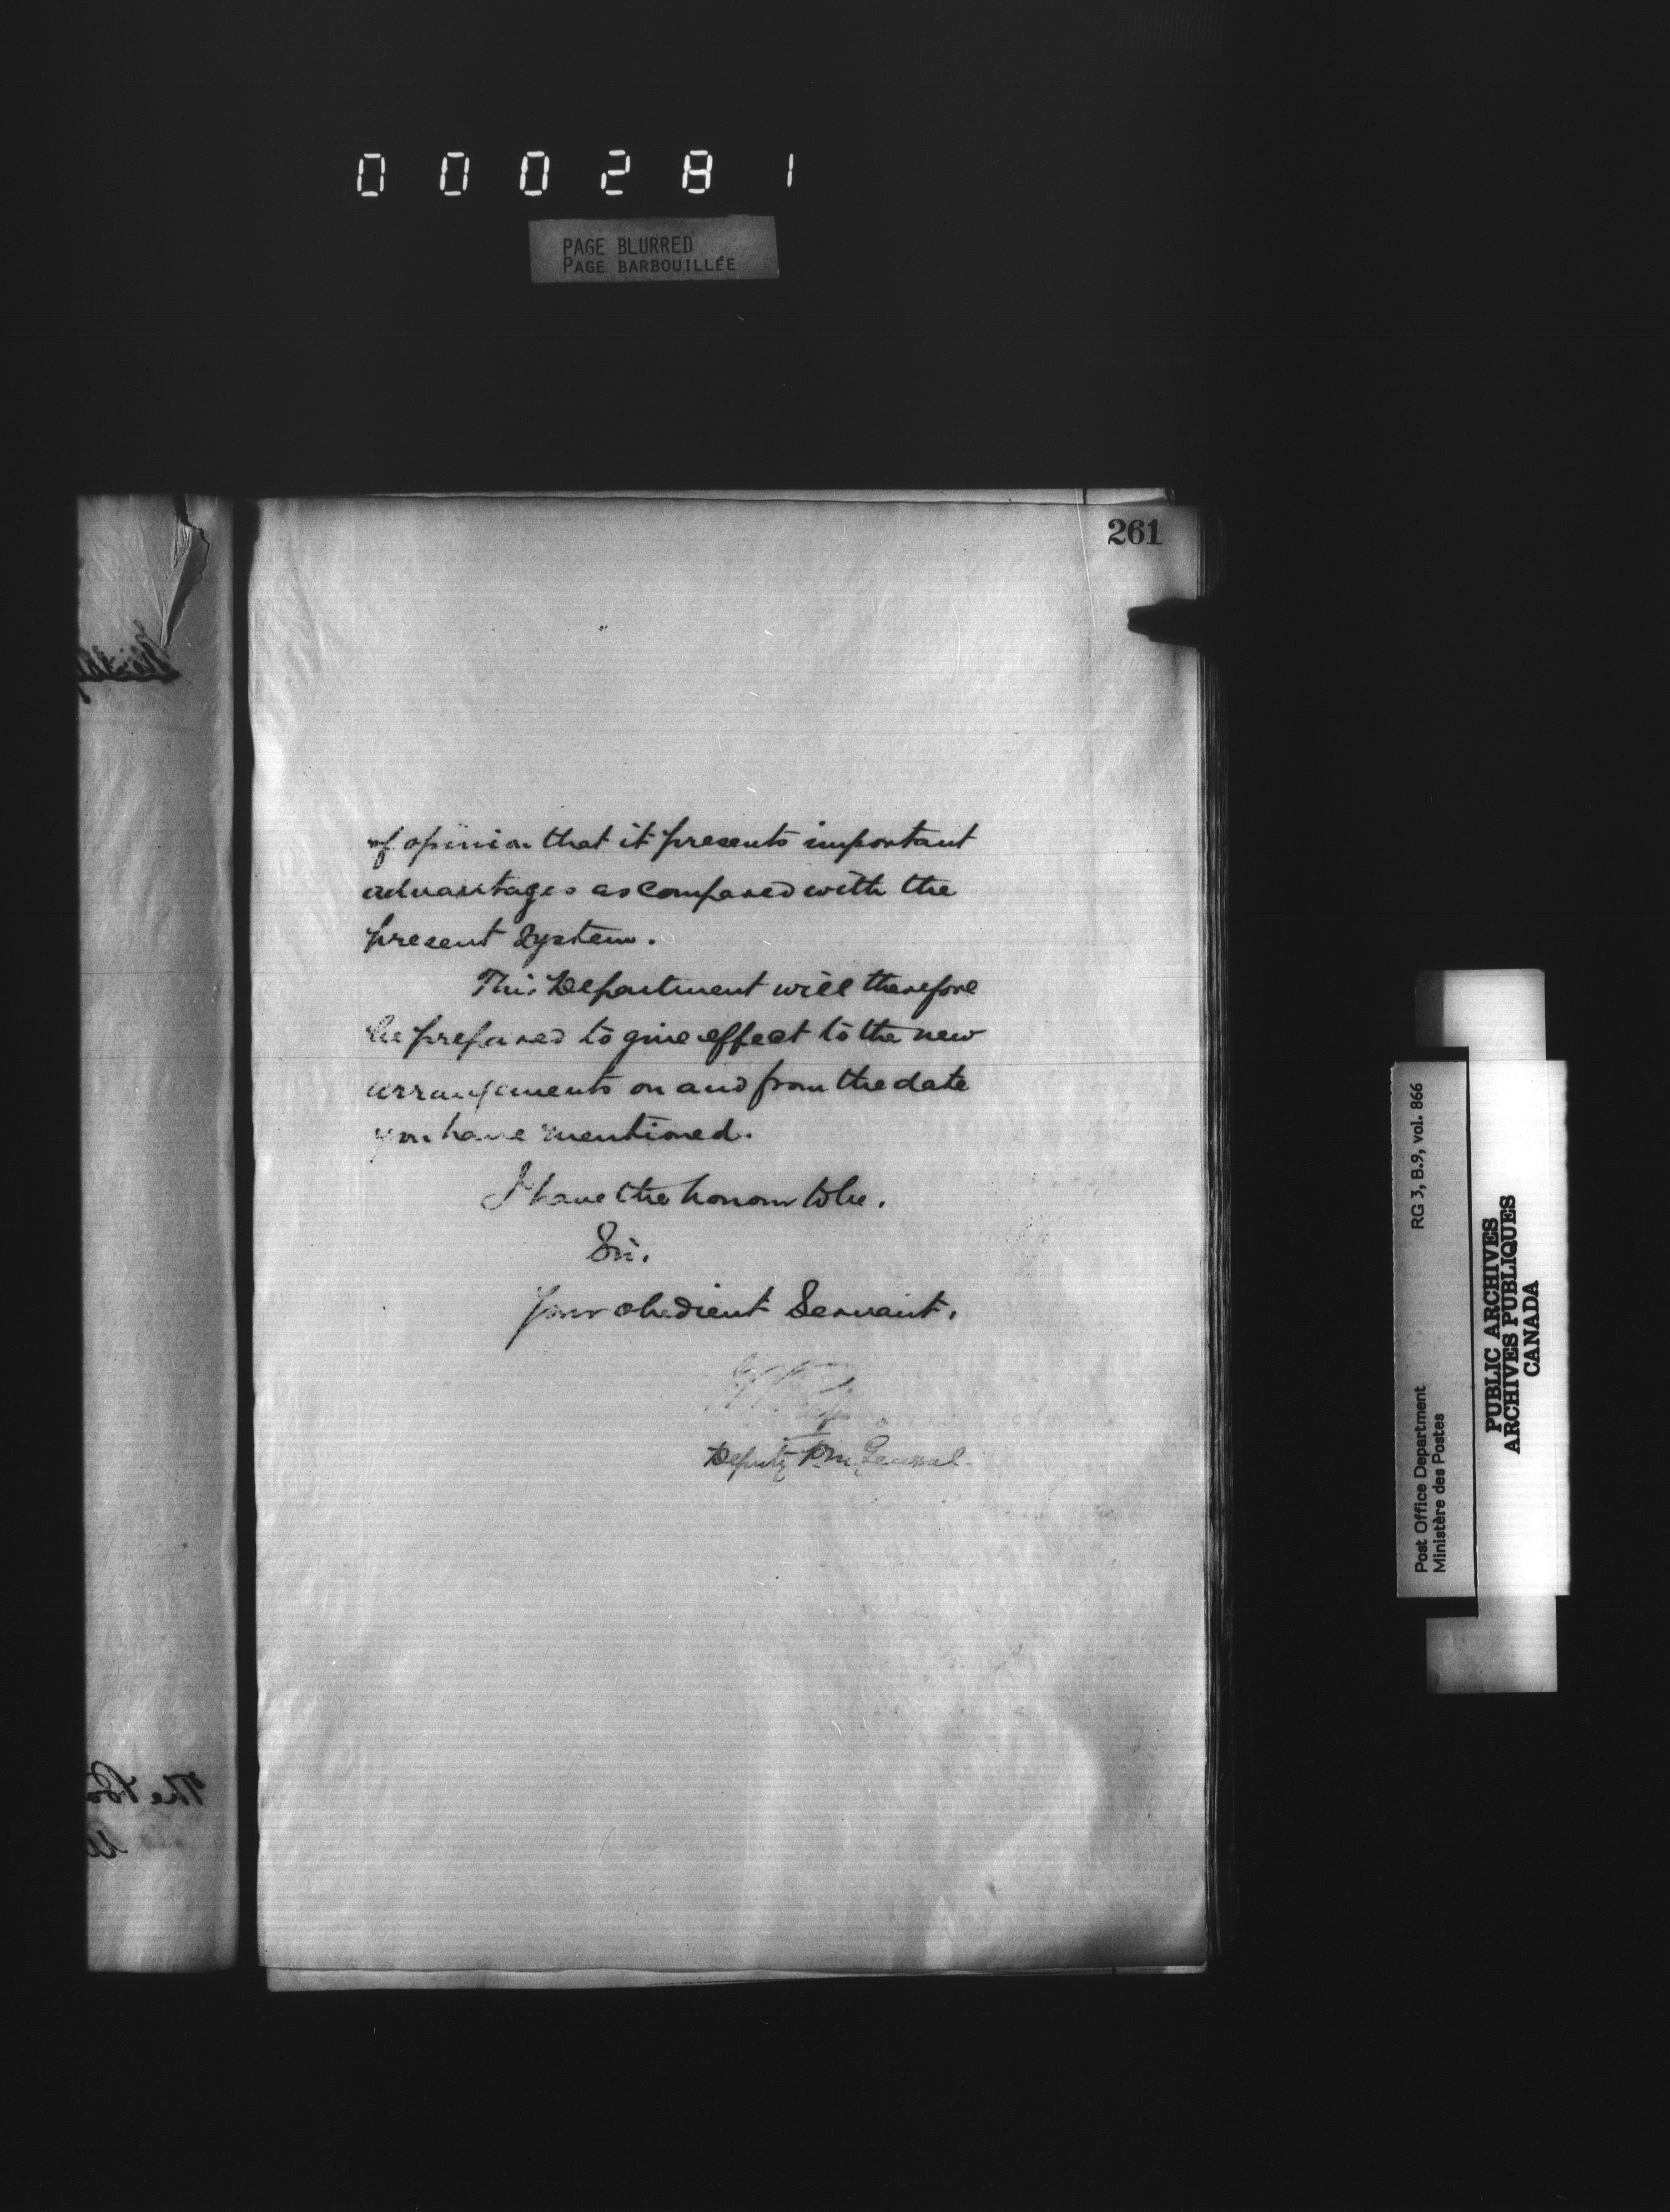 000281
PAGE BLURRED
PAGE BARBOUILLÉE
261
of opinion that it presents important
advantages as compared with the
present System.
This Department will therefore
be prepared to give effect to the new
arrangements on and from the date
you have mentioned.
I have the honour to be,
Sir,
Your obedient Servant,
Deputy P.M. General
The
Post Office Department
Ministère des Postes
RG 3, B.9, vol. 866
PUBLIC ARCHIVES
ARCHIVES PUBLIQUES
CANADA